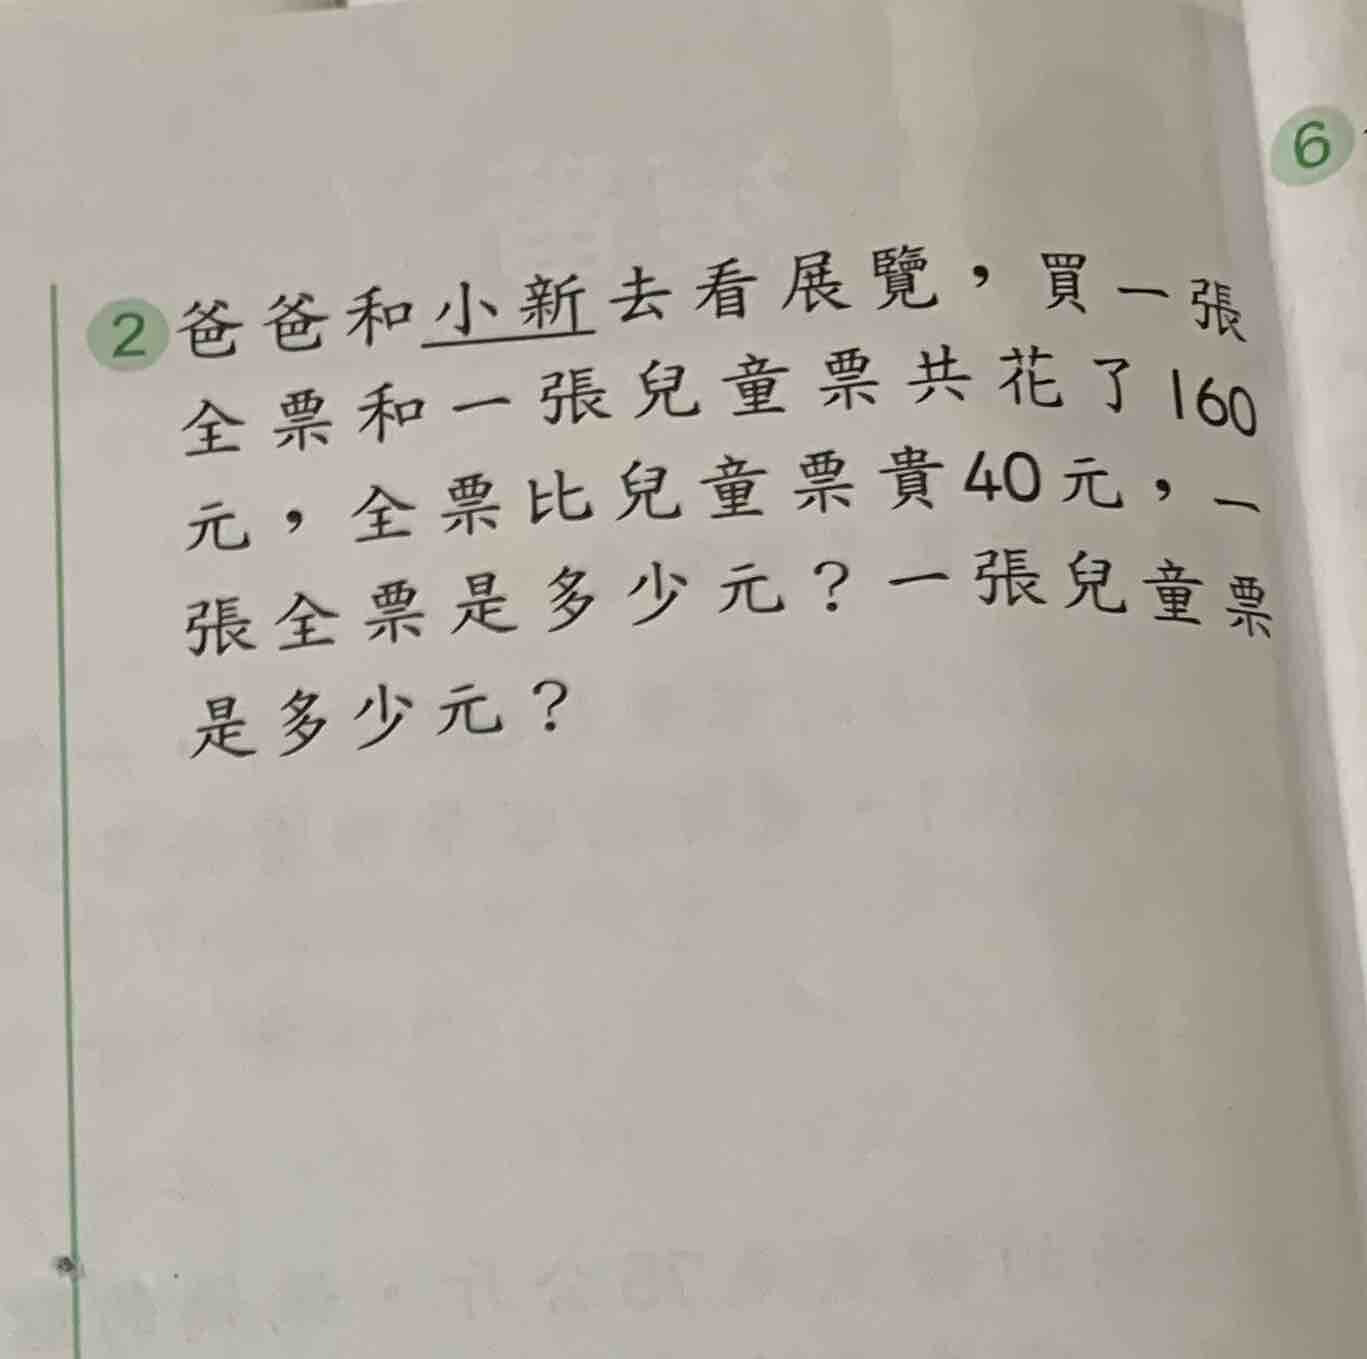 2 爸爸和小新去看展覽，買一張
全票和一張兒童票共花了160
元，全票比兒童票貴40元，一
張全票是多少元？一張兒童票
是多少元？
6